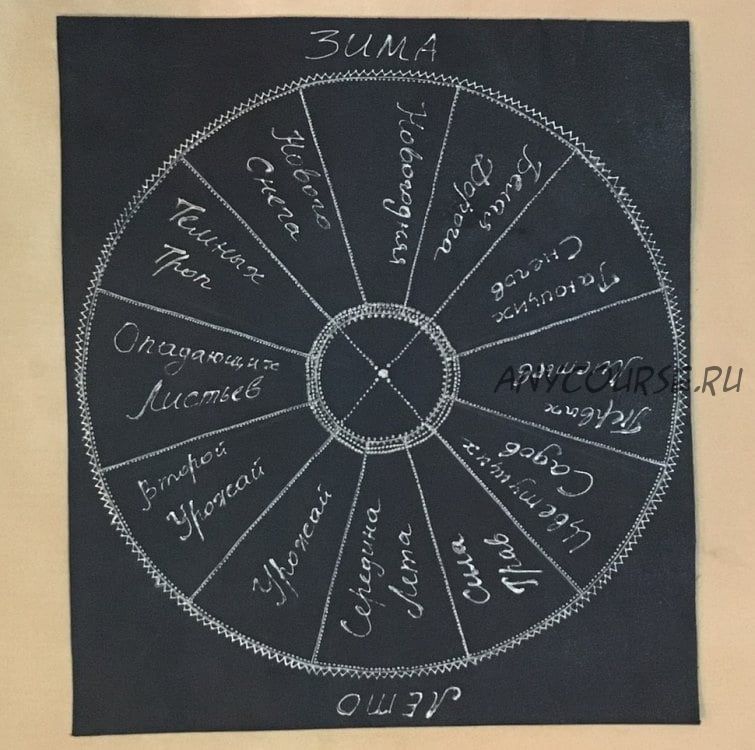 ЗИМА
Новогодняя
Белая
Дорога
Тающих
Снегов
Первых
Листьев
Цветущих
Садов
Сила
Трав
Середина
Лета
Урожай
Второй
Урожай
Опадающих
Листьев
Темных
Троп
Нового
Снега
ЛЕТО
ANYCOURSE.RU